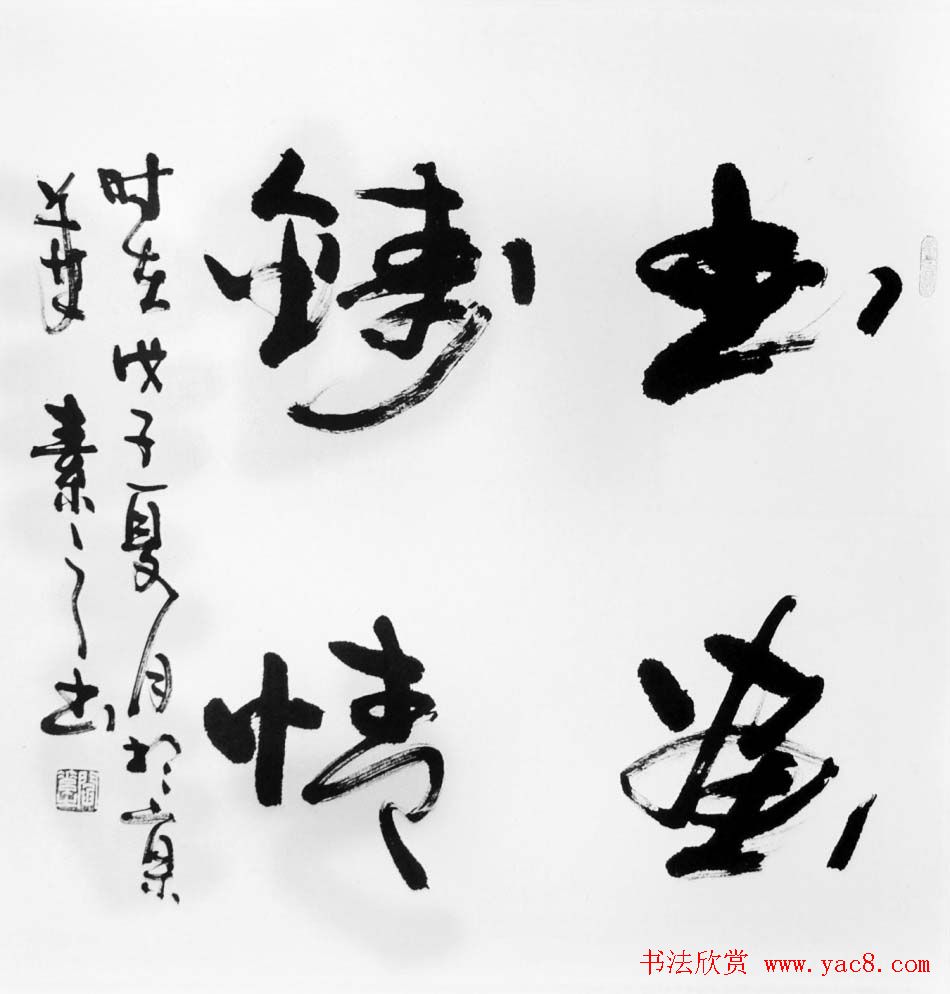 书画
铸情
时在戊子夏月於京
华素之书
书法欣赏 www.yac8.com